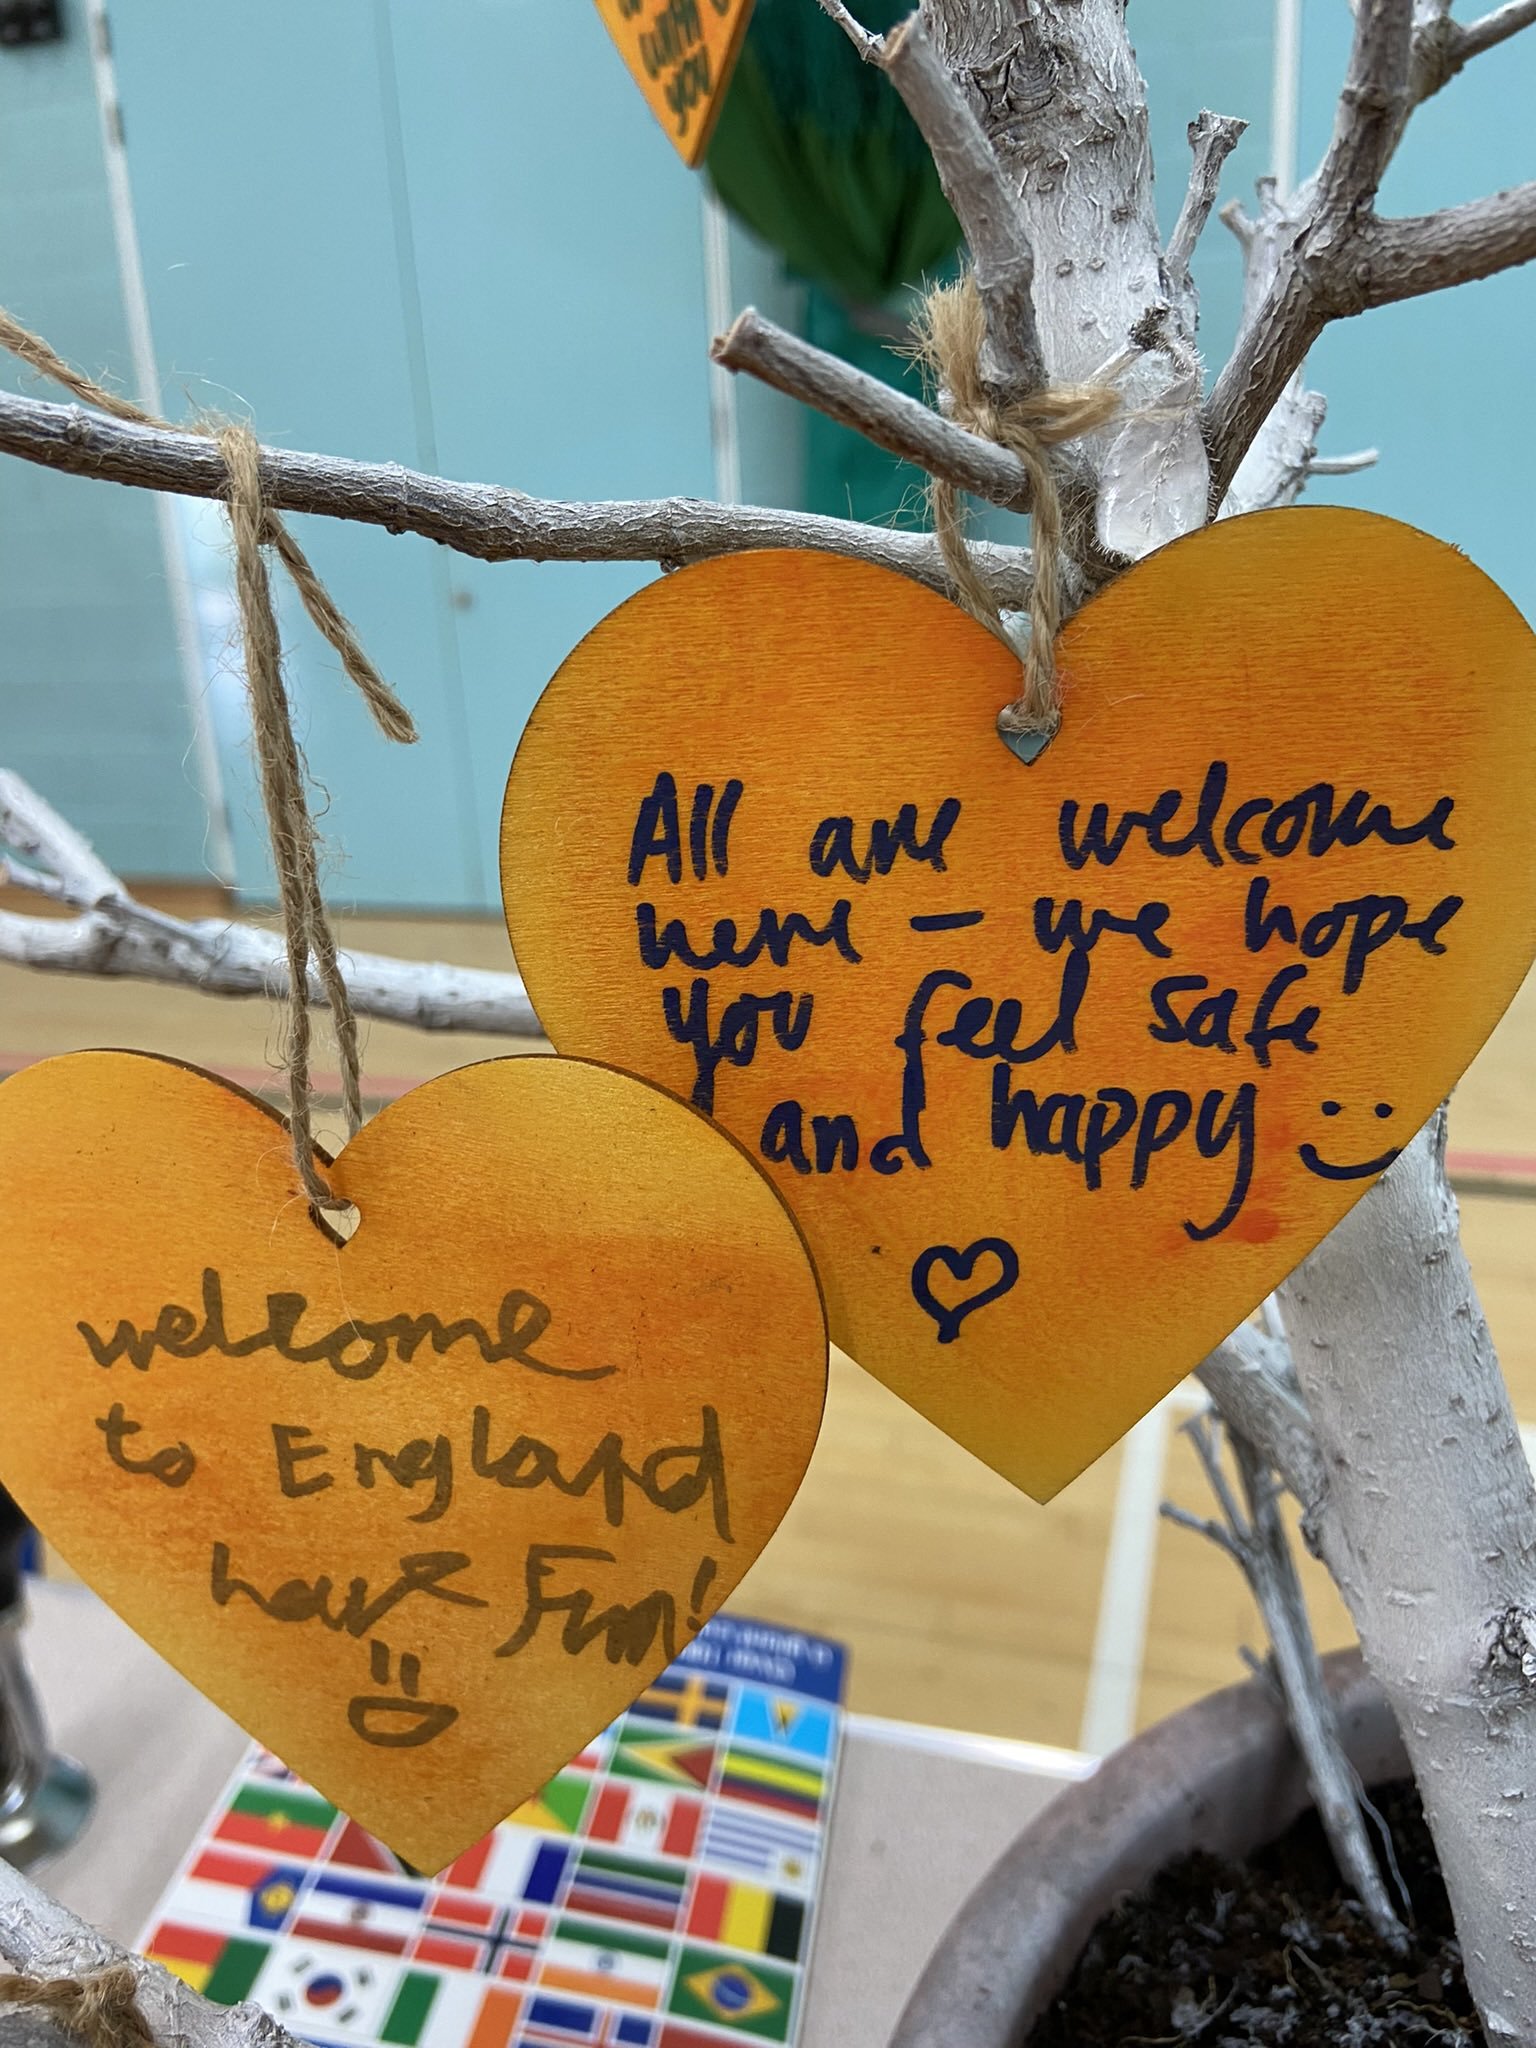 with
you
All are welcome
here - we hope
you feel safe
and happy
welcome
to England
have Fun!